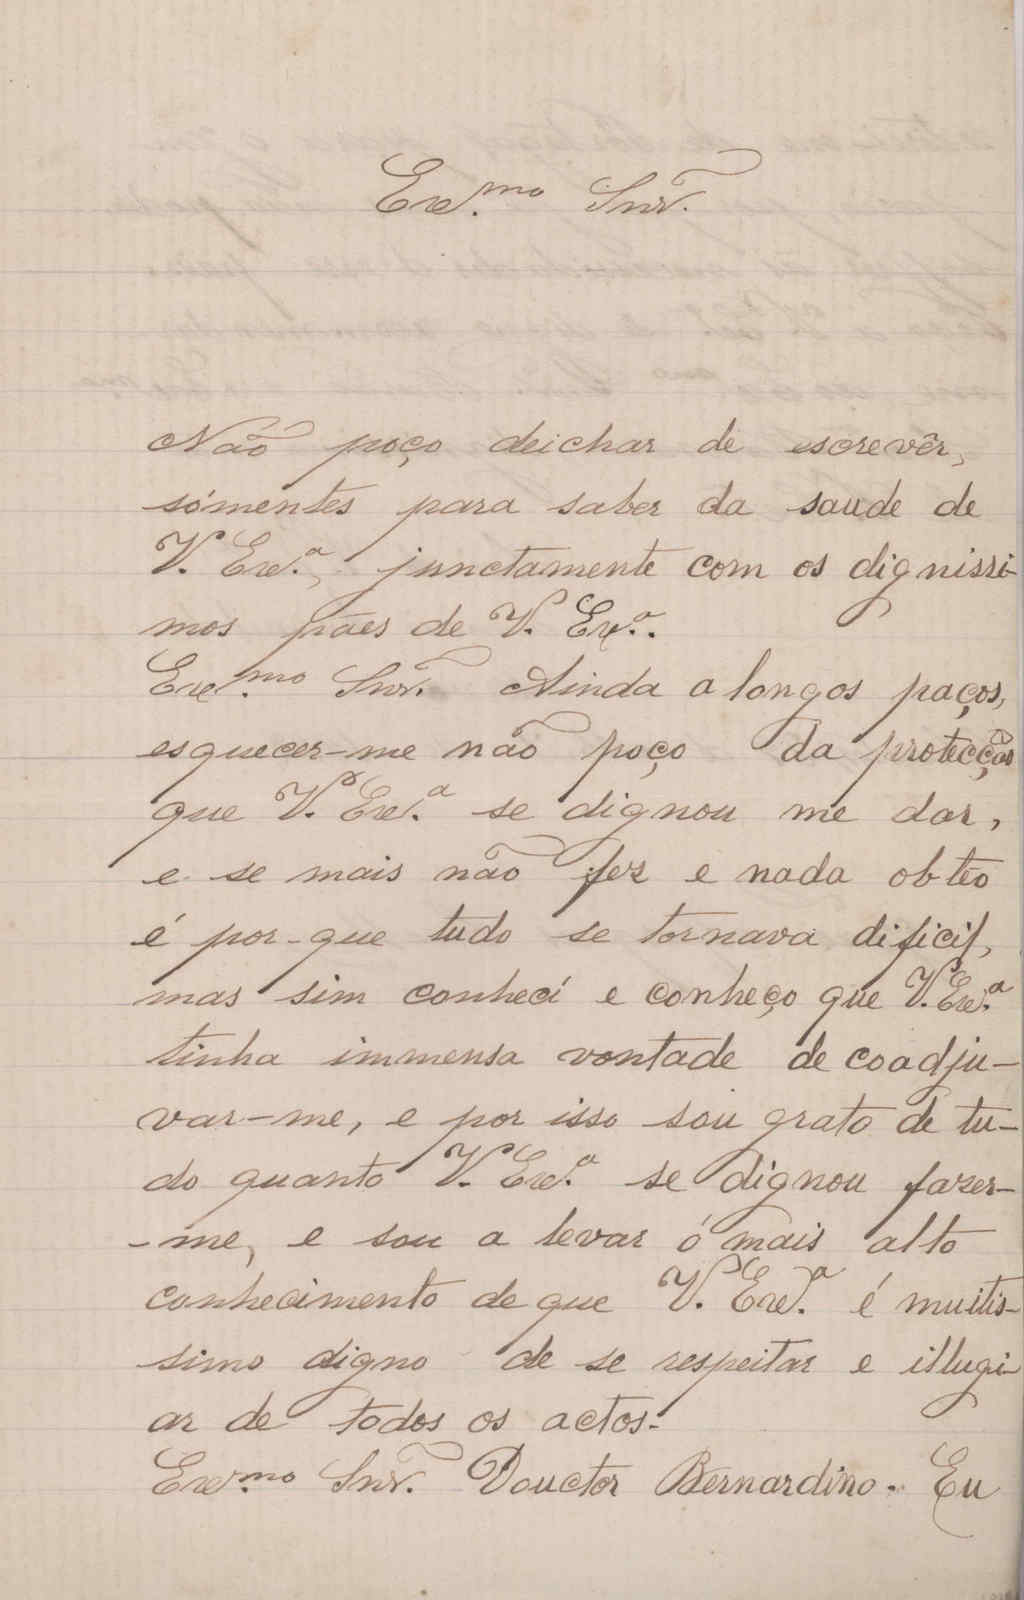 Exc.mo Snr.
Não poço deichar de escrevêr,
sómentes para saber da saude de
V. Exc.a, junctamente com os dignissi-
mos pães de V. Ex.a.
Exc.mo Snr. Ainda a longos paços,
esquecer-me não poço da protecção
que V. Exc.a se dignou me dar,
e se mais não fez e nada obtéo
é por-que tudo se tornava dificil,
mas sim conhecí e conheço que V. Exc.a
tinha immensa vontade de coadju-
var-me, e por isso sou grato de tu-
do quanto V. Exc.a se dignou fazer-
-me, e sou a levar ó mais alto
conhecimento de que V. Exc.a é muitis-
simo digno de se respeitar e illugi-
ar de todos os actos.
Exc.mo Snr. Douctor Bernardino. Eu